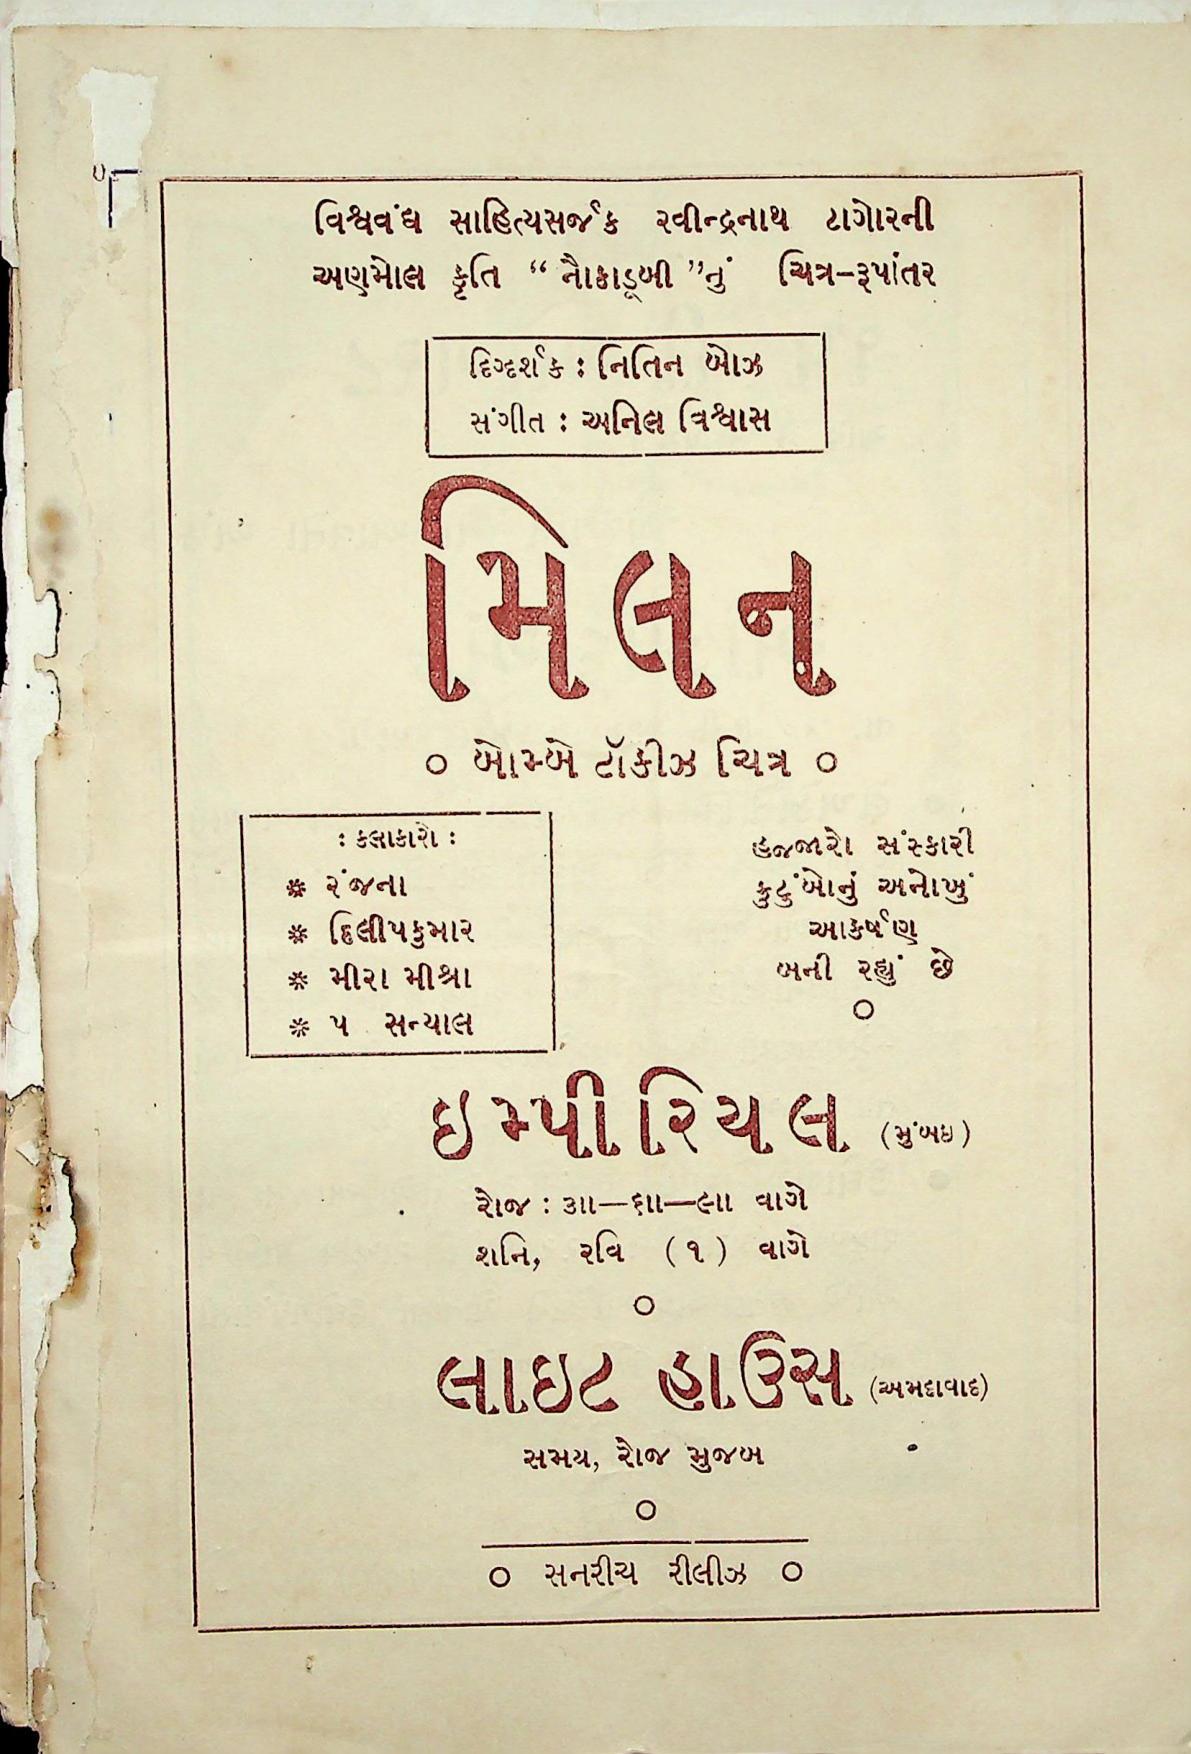 વિશ્વવંદ્ય સાહિત્યસર્જક રવીન્દ્રનાથ ટાગોરની
અણમોલ કૃતિ “ નૌકાડૂબી ”નું ચિત્ર-રૂપાંતર
દિગ્દર્શક : નિતિન બોઝ
સંગીત : અનિલ વિશ્વાસ
મિલન
૦ બોમ્બે ટૉકીઝ ચિત્ર ૦
: કલાકારો :
* રંજના
* દિલીપકુમાર
* મીરા મીશ્રા
* પ સન્યાલ
હજ્જારો સંસ્કારી
કુટુંબોનું અનોખું
આકર્ષણ
બની રહ્યું છે
૦
ઇમ્પીરિયલ (મુંબઇ)
રોજ : ૩ાા—૬ાા—૯ાા વાગે
શનિ, રવિ (૧) વાગે
૦
લાઇટ હાઉસ (અમદાવાદ)
સમય, રોજ મુજબ
૦
૦ સનરીચ રીલીઝ ૦